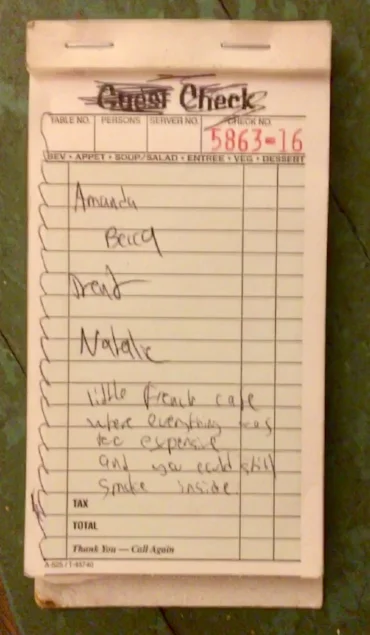 Guest Check
TABLE NO. PERSONS SERVER NO. CHECK NO.
5863-16
BEV • APPET • SOUP/SALAD • ENTREE • VEG • DESSERT
Amanda
Trent
Natalie
little french cafe
where everything was
too expensive
and you could still
smoke inside
TAX
TOTAL
Thank You — Call Again